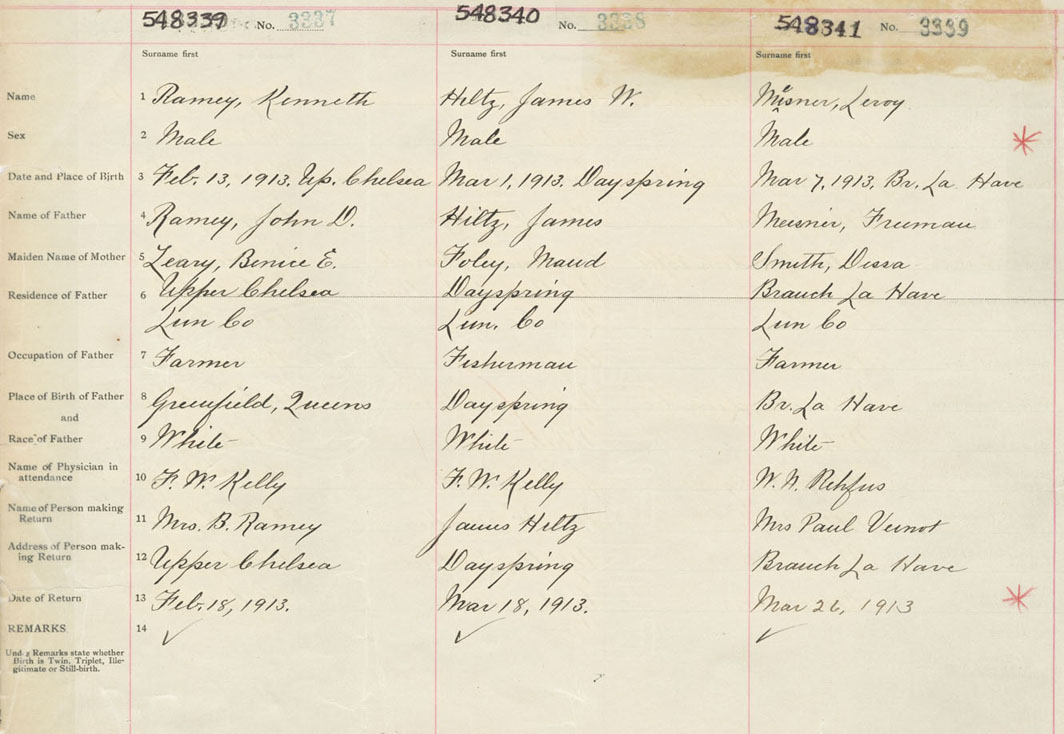 548339 No. 3337 548340 No. 3338 548341 No. 3339
Surname first Surname first Surname first
Name 1 Ramey, Kenneth Hiltz, James W. Misner, Leroy
Sex 2 Male Male Male
Date and Place of Birth 3 Feb. 13, 1913. Up. Chelsea Mar 1, 1913. Dayspring Mar 7, 1913, Br. La Have
Name of Father 4 Ramey, John D. Hiltz, James Meisner, Freeman
Maiden Name of Mother 5 Leary, Benice E. Foley, Maud Smith, Dessa
Residence of Father 6 Upper Chelsea Dayspring Branch La Have
Lun Co Lun. Co Lun Co
Occupation of Father 7 Farmer Fisherman Farmer
Place of Birth of Father 8 Greenfield, Queens Dayspring Br. La Have
and
Race of Father 9 White White White
Name of Physician in
attendance 10 F. W. Kelly F. W. Kelly W. N. Rehfus
Name of Person making
Return 11 Mrs. B. Ramey James Hiltz Mrs Paul Veinot
Address of Person mak-
ing Return 12 Upper Chelsea Dayspring Branch La Have
Date of Return 13 Feb. 18, 1913. Mar 18, 1913. Mar 26, 1913
REMARKS 14
Remarks state whether
Birth is Twin, Triplet, Ille-
gitimate or Still-birth.